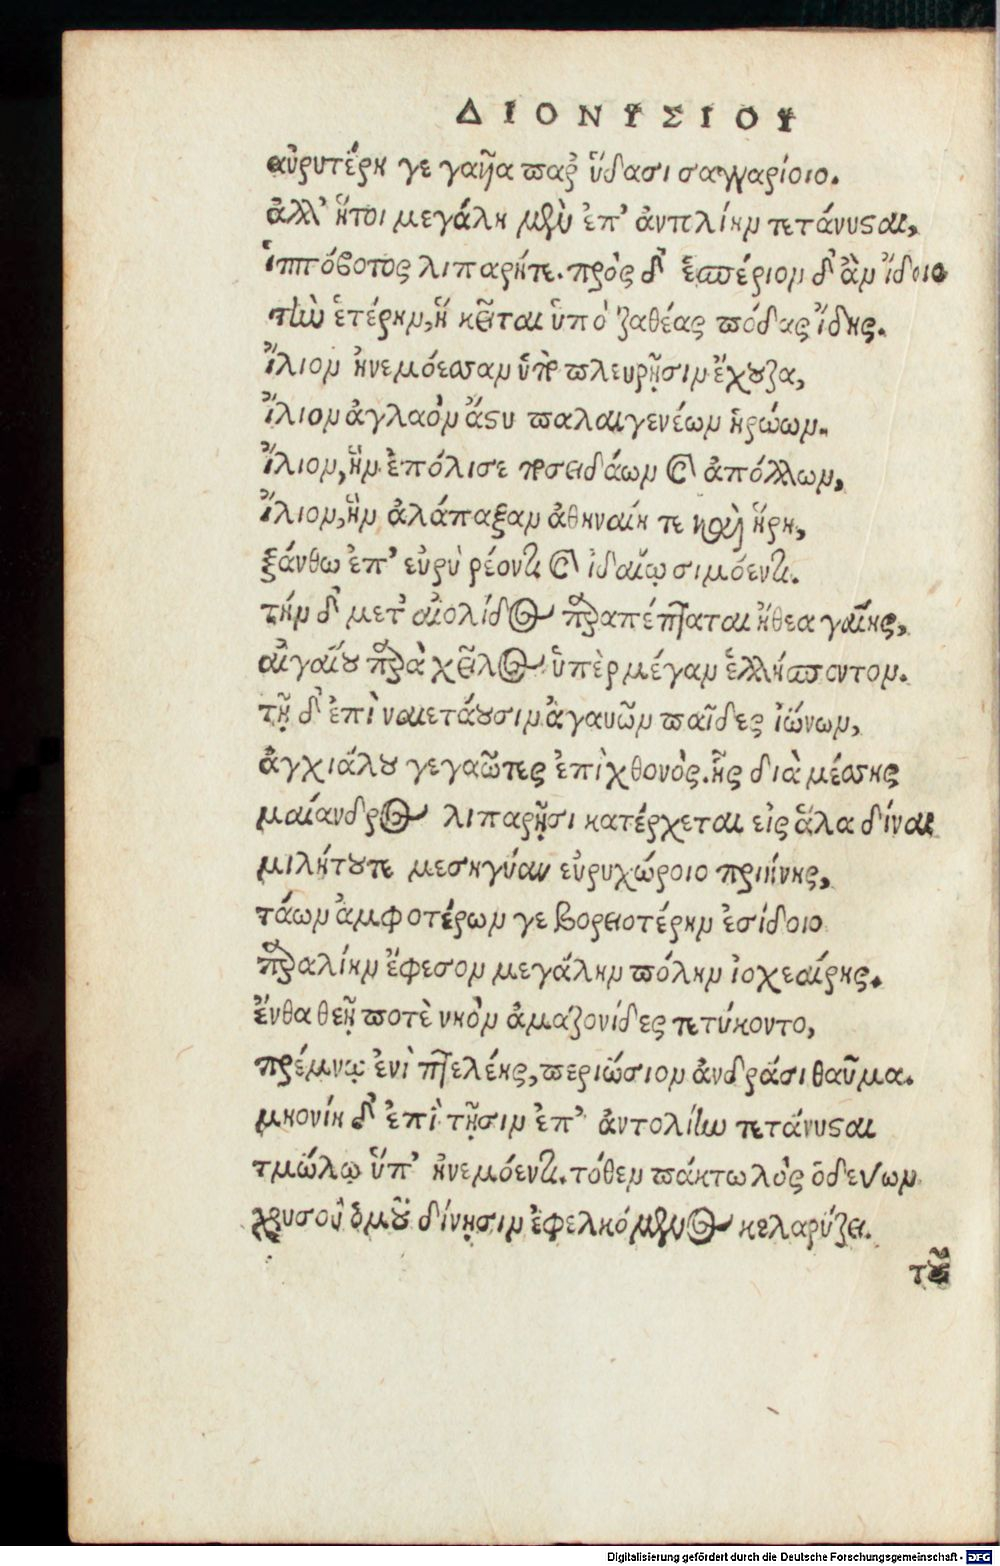 ΔΙΟΝΥΣΙΟΥ
αὐρυτέρη γε γαῖα παρ ὕδασι σαγγαρίοιο.
ἀλλ' ἤτοι μεγάλη μὲν ἐπ' ἀντολίην τετάνυσαι,
ἱππόβοτος λιπαρήτε. πρὸς δ' ἑσπέριον δ' ἂν ἴδοιο
τὴν ἑτέρην, ἣ κεῖται ὑπὸ ζαθέας πόδας ἴδης.
ἴλιον ἠνεμόεσσαν ὑπὸ πλευρῇσιν ἔχουζα,
ἴλιον ἀγλαὸν ἄστυ παλαιγενέων ἡρώων.
ἴλιον, ἣν ἐπόλισε ποσειδάων καὶ ἀπόλλων,
ἴλιον, ἣν ἀλάπαξαν ἀθηναίη τε καὶ ἥρη,
ξάνθω ἐπ' εὐρὺ ρέοντι καὶ ἰδαίῳ σιμόεντι.
τὴν δ' μετ' αἰολίδος παραπέπταται ἤθεα γαίης,
αἰγαίου παρὰ χεῖλος ὑπὲρ μέγαν ἑλλήσποντον.
τῇ δ' ἐπὶ ναιετάουσιν ἀγαυῶν παῖδες ἰώνων,
ἀγχιάλου γεγαῶτες ἐπὶ χθονὸς. ἧς διὰ μέσσης
μαίανδρος λιπαρῇσι κατέρχεται εἰς ἅλα δίναι
μιλήτουτε μεσηγύαν εὐρυχώροιο πριήνης,
τάων ἀμφοτέρων γε βορειοτέρην ἐσίδοιο
παραλίην ἔφεσον μεγάλην πόλην ἰοχεαίρης.
ἔνθα θεῇ ποτὲ νηὸν ἀμαζονίδες τετύκοντο,
πρέμνῳ ἐνὶ πτελέης, περιώσιον ἀνδράσι θαῦμα.
μηονίη δ' ἐπὶ τῇσιν ἐπ' ἀντολίην τετάνυσται
τμώλῳ ὕπ' ἠνεμόεντι. τόθεν πάκτωλὸς ὁδεύων
χρυσοῦ ὁμοῦ δίνῃσιν ἐφελκόμενος κελαρύζει.
τοῦ
Digitalisierung gefördert durch die Deutsche Forschungsgemeinschaft - DFG